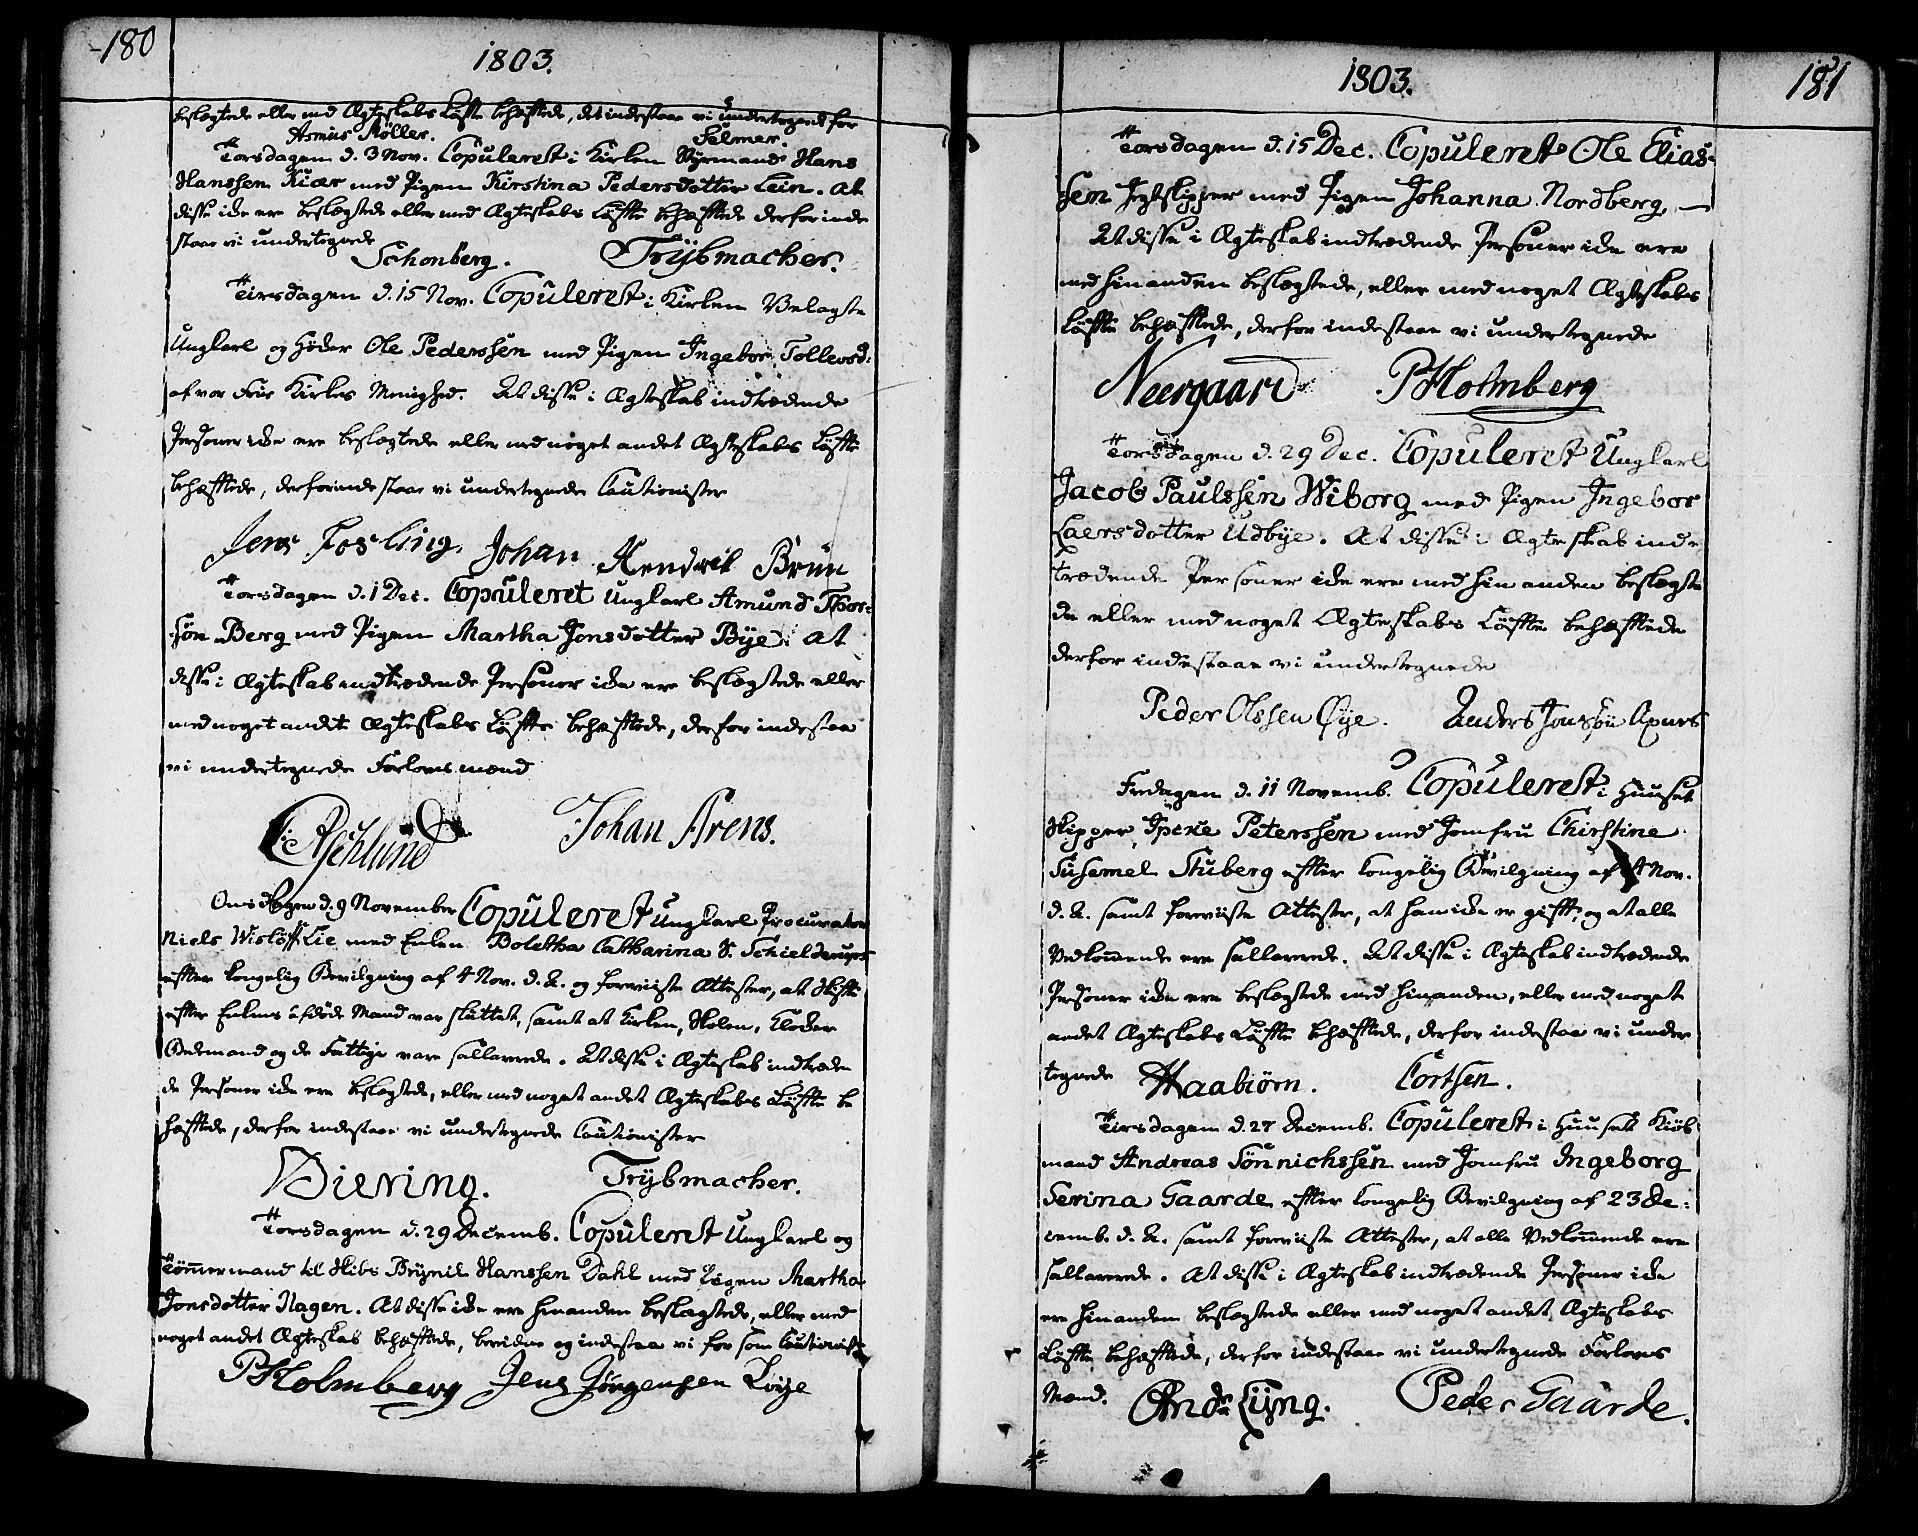 180
1803.
beslægtede eller med Ægteskabs Løfte behæftede, det indestaae vi undertegnede for
Asmus Møller. Selmer.
Torsdagen d. 3 Nov. Copuleret i Kirken Styrmand Hans
Hanssen Kiær med Pigen Kirstina Pedersdotter Lein. At
disse icke ere beslægtede eller med Ægteskabs Løffte behæfftede derfor inde
staae vi undertegnede
Schonberg. Trÿbmacher.
Tirsdagen d. 15 Nov. Copuleret i Kirken
Ungkarl og Ole Pederssen med Pigen Ingebor Tollevsd:
af vor Frue Kirkes Menighed. At disse i Ægteskab indtrædende
Personer icke ere beslægtede eller med noget andet Ægteskabs Løffte
behæfftede, derfor indestaae vi undertegnede Cautionister
Jens Fosling. Johan Hendrik Brun
Torsdagen d. 1 Dec. Copuleret Ungkarl Amund Thor-
søn Berg med Pigen Martha Jonsdotter Bÿe. At
disse i Ægteskab indtrædende Personer icke ere beslægtede eller
med noget andet Ægteskabs Løffte behæfftede, derfor indestaae
vi undertegnede Forlovsmænd
Johan Arens.
Onsdagen d. 9 November Copuleret Ungkarl Procurator
Niels Wisløff Lie med Enken Boletha Catharina S. Schielderup
effter kongelig Bevilgning af 4 Nov. d. A. og foreviiste Attester, at Skifte
effter Enkens afdøde Mand var sluttet, samt at Kirken, Skolen, Klocker
Bedemand og de Fattige vare sallarerede. At disse i Ægteskab indtræden
de Personer icke ere beslægtede, eller med noget andet Ægteskabs Løffte be
hæfftede, derfor indestaae vi undertegnede Cautionister
Diering. Trÿbmacher.
Torsdagen d. 29 Decemb. Copuleret Ungkarl og
Tømmermand til Skibs Brÿnil Hanssen Dahl med Pigen Martha
Jonsdotter Hagen. At disse icke ere hinanden beslægtede, eller med
noget andet Ægteskab behæfftede, bevidne og indestaae vi for som Cautionist
PHolmberg Jens Jørgensen Loÿe
1803.
181
Torsdagen d. 15 Dec. Copuleret Ole Elias-
sen Jegtskipper med Pigen Johanna Nordberg.
At disse i Ægteskab indtrædende Personer icke ere
med hinanden beslægtede, eller med noget Ægteskabs
Løffte behæfftede, derfor indestaae vi undertegnede
Neergaard PHolmberg
Torsdagen d. 29 Dec. Copuleret Ungkarl
Jacob Paulssen Wiborg med Pigen Ingebor
Laersdotter Udbÿe. At disse i Ægteskab ind
trædende Personer icke ere med hinanden beslægte
de eller med noget Ægteskabs Løffte behæfftede
derfor indestaae vi undertegnede
Peder Olssen Øÿe. Anders Jonssøn Axnes
Fredagen d. 11 Novemb. Copuleret i Huuset
Skipper Petersen med Jomfru Chirstine
Susemel Stuberg effter kongelig Bevilgning af 4 Nov.
d. A. samt foreviiste Attester, at han icke er gifft, og at alle
Vedkommende ere sallarerede. At disse i Ægteskab indtrædende
Personer icke ere beslægtede med hinanden, eller med noget
andet Ægteskabs Løffte behæfftede, derfor indestaae vi under
tegnede Haabiørn. Cortsen.
Tirsdagen d. 27 Decemb. Copuleret i Huuset Kiøb
mand Andreas Sønnichssen med Jomfru Ingeborg
Serina Gaarde effter kongelig Bevilgning af 23 De:
cemb. d. A. samt foreviiste Attester, at alle Vedkommende ere
sallarerede. At disse i Ægteskab indtrædende Personer icke
ere hinanden beslægtede eller med noget andet Ægteskabs
Løffte behæfftede, derfor indestaae vi undertegnede Forlovs
Mænd. And: Lÿng. Peder Gaarde.